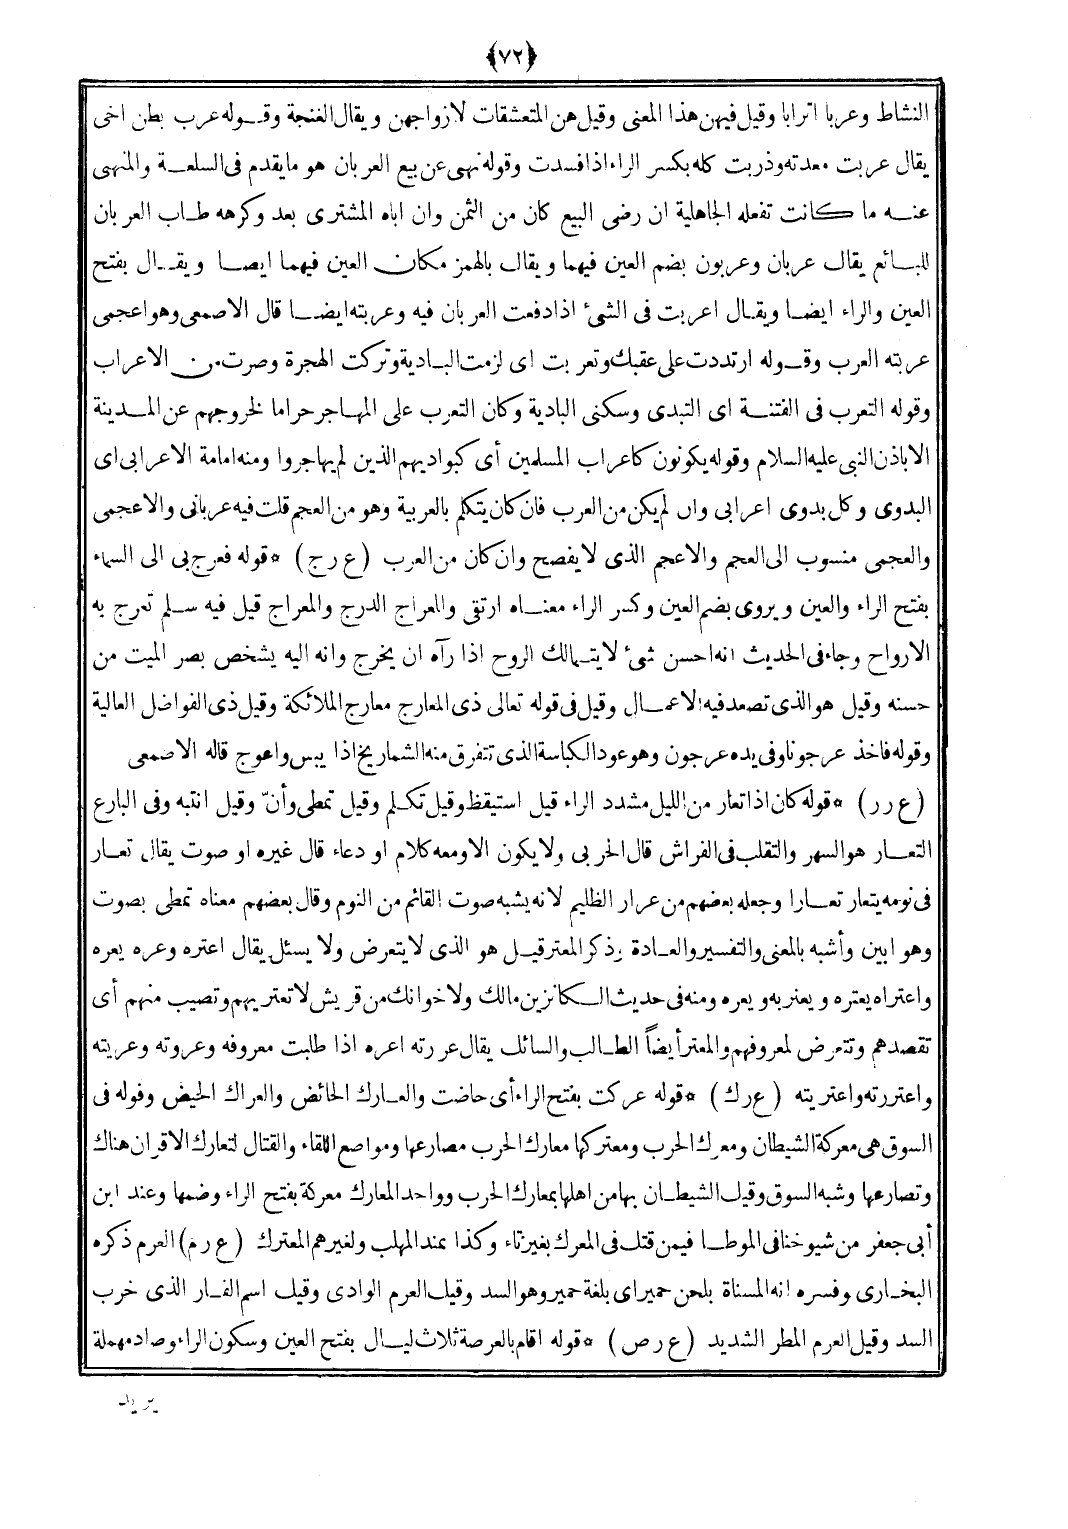 ﴿٧٢﴾
النشاط وعربا اترابا وقيل فيهن هذا المعنى وقيل هن المتعشقات لازواجهن ويقال الغنجة وقوله عرب بطن اخى
يقال عربت معدته وذربت كله بكسر الراء اذا فسدت وقوله نهى عن بيع العربان هو ما يقدم فى السلعة والمنهى
عنه ما كانت تفعله الجاهلية ان رضى البيع كان من الثمن وان اباه المشترى بعد وكرهه طاب العربان
للبائع يقال عربان وعربون بضم العين فيهما ويقال بالهمز مكان العين فيهما ايضا ويقال بفتح
العين والراء ايضا ويقال اعربت فى الشئ اذا دفعت العربان فيه وعربته ايضا قال الاصمعى وهو اعجمى
عربته العرب وقوله ارتددت على عقبك وتعربت اى لزمت البادية وتركت الهجرة وصرت من الاعراب
وقوله التعرب فى الفتنة اى التبدى وسكنى البادية وكان التعرب على المهاجر حراما لخروجهم عن المدينة
الا باذن النبى عليه السلام وقوله يكونون كاعراب المسلمين أى كبواديهم الذين لم يهاجروا ومنه امامة الاعرابى اى
البدوى وكل بدوى اعرابى وان لم يكن من العرب فان كان يتكلم بالعربية وهو من العجم قلت فيه عربانى والاعجمى
والعجمى منسوب الى العجم والاعجم الذى لا يفصح وان كان من العرب (ع رج) *قوله فعرج بى الى السماء
بفتح الراء والعين ويروى بضم العين وكسر الراء معناه ارتقى والمعراج الدرج والمعراج قيل فيه سلم تعرج به
الارواح وجاء فى الحديث انه احسن شئ لا يتمالك الروح اذا رآه ان يخرج وانه اليه يشخص بصر الميت من
حسنه وقيل هو الذى تصعد فيه الاعمال وقيل فى قوله تعالى ذى المعارج معارج الملائكة وقيل ذى الفواضل العالية
وقوله فاخذ عرجونا وفى يده عرجون وهو عود الكباسة الذى تتفرق منه الشماريخ اذا يبس واعوج قاله الاصمعى
(ع رر) *قوله كان اذا تعار من الليل مشدد الراء قيل استيقظ وقيل تكلم وقيل تمطى وأنّ وقيل انتبه وفى البارع
التعار هو السهر والتقلب فى الفراش قال الحربى ولا يكون الا ومعه كلام او دعاء قال غيره او صوت يقال تعار
فى نومه يتعار تعارا وجعله بعضهم من عرار الظليم لانه يشبه صوت القائم من النوم وقال بعضهم معناه تمطى بصوت
وهو ابين وأشبه بالمعنى والتفسير والعادة وذكر المعتر قيل هو الذى لا يتعرض ولا يسئل يقال اعتره وعره يعره
واعتراه يعتره ويعتر به ويعره ومنه فى حديث الكانزين مالك ولاخوانك من قريش لا تعتريهم وتصيب منهم أى
تقصدهم وتتعرض لمعروفهم والمعتر أيضاً الطالب والسائل يقال عررته اعره اذا طلبت معروفه وعروته وعريته
واعتررته واعتريته (ع رك) *قوله عركت بفتح الراء أى حاضت والعارك الحائض والعراك الحيض وقوله فى
السوق هى معركة الشيطان ومعرك الحرب ومعتركها معارك الحرب مصارعها ومواضع اللقاء والقتال لتعارك الاقران هناك
وتصارعها وشبه السوق وقيل الشيطان بها من اهلها بمعارك الحرب وواحد المعارك معركة بفتح الراء وضمها وعند ابن
أبى جعفر من شيوخنا فى الموطا فيمن قتل فى المعرك بغير تاء وكذا عند المهلب ولغيرهم المعترك (ع رم) العرم ذكره
البخارى وفسره انه المسناة بلحن حمير اى بلغة حمير وهو السد وقيل العرم الوادى وقيل اسم الفار الذى خرب
السد وقيل العرم المطر الشديد (ع رص) *قوله اقام بالعرصة ثلاث ليال بفتح العين وسكون الراء وصاد مهملة
يريد